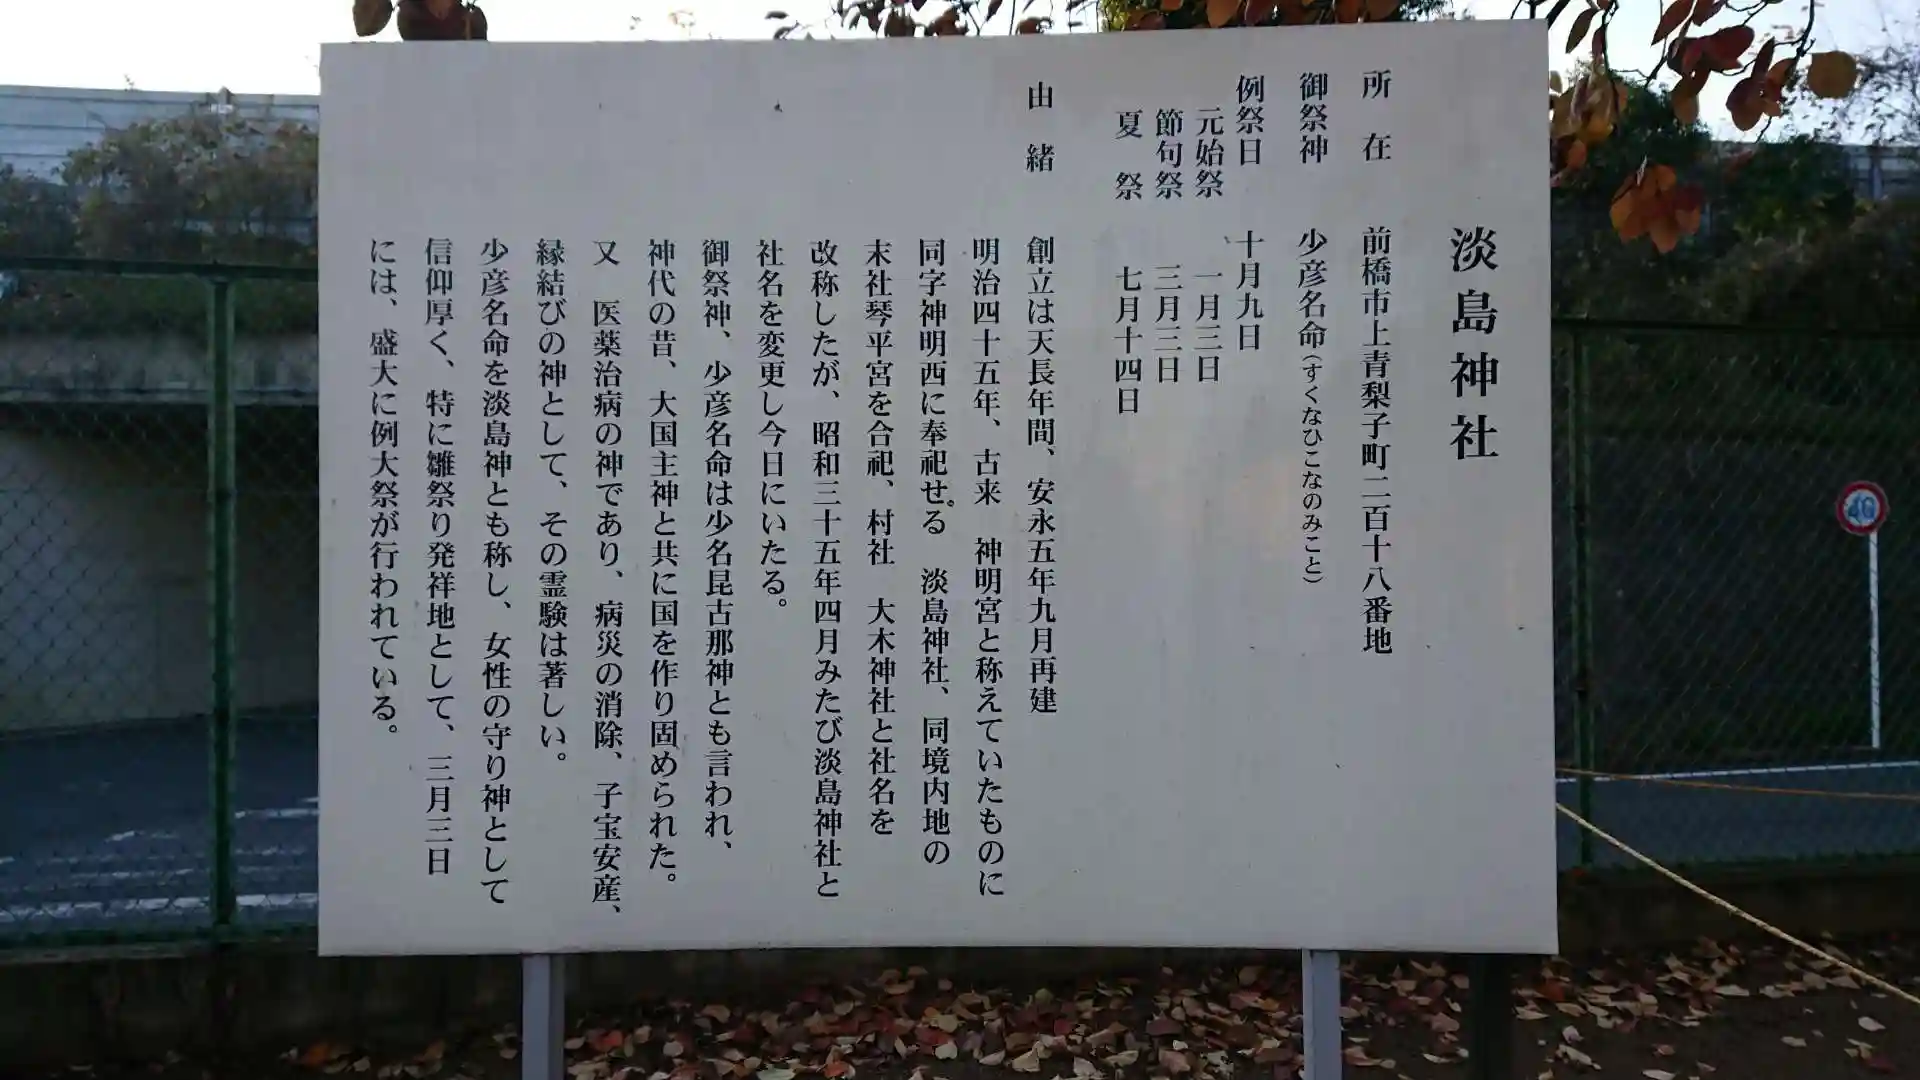 淡島神社
所在 前橋市上青梨子町二百十八番地
御祭神 少彦名命(すくなひこなのみこと)
例祭日 十月九日
元始祭 一月三日
節句祭 三月三日
夏祭 七月十四日
由緒 創立は天長年間、安永五年九月再建
明治四十五年、古来 神明宮と称えていたものに
同字神明西に奉祀せる。 淡島神社、同境内地の
末社琴平宮を合祀、村社 大木神社と社名を
改称したが、昭和三十五年四月みたび淡島神社と
社名を変更し今日にいたる。
御祭神、少彦名命は少名昆古那神とも言われ、
神代の昔、大国主神と共に国を作り固められた。
又 医薬治病の神であり、病災の消除、子宝安産、
縁結びの神として、その霊験は著しい。
少彦名命を淡島神とも称し、女性の守り神として
信仰厚く、特に雛祭り発祥地として、三月三日
には、盛大に例大祭が行われている。
40